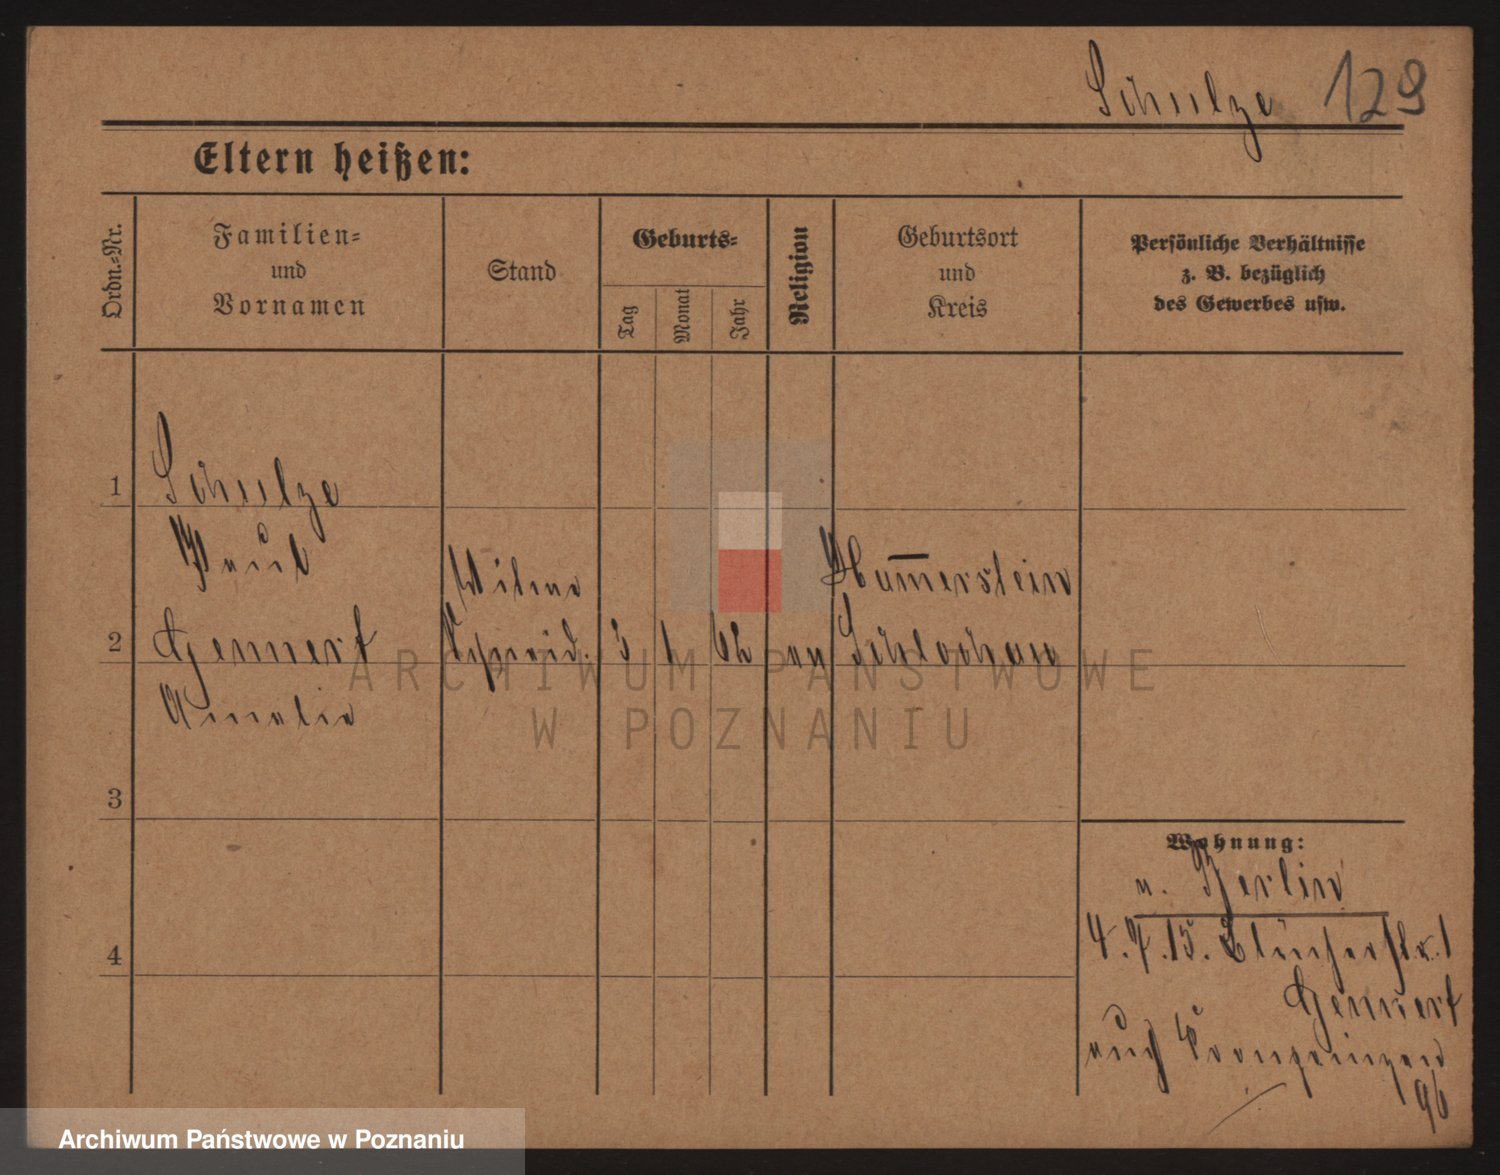 Schulze 129
Eltern heißen:
Ordn.-Nr.
Familien-
und
Vornamen
Stand
Geburts-
Tag
Monat
Jahr
Religion
Geburtsort
und
Kreis
Persönliche Verhältnisse
z. B. bezüglich
des Gewerbes usw.
1
Schulze
Paul
2
Gennerf
Amalie
3 1 62 ev
Ham̅erstein
Schlochau
3
4
Wohnung:
v. Berlin
4. 7. 15. Blücherstr. 1
Gennerf
auf Kronprinzen
96
ARCHIWUM PAŃSTWOWE
W POZNANIU
Archiwum Państwowe w Poznaniu